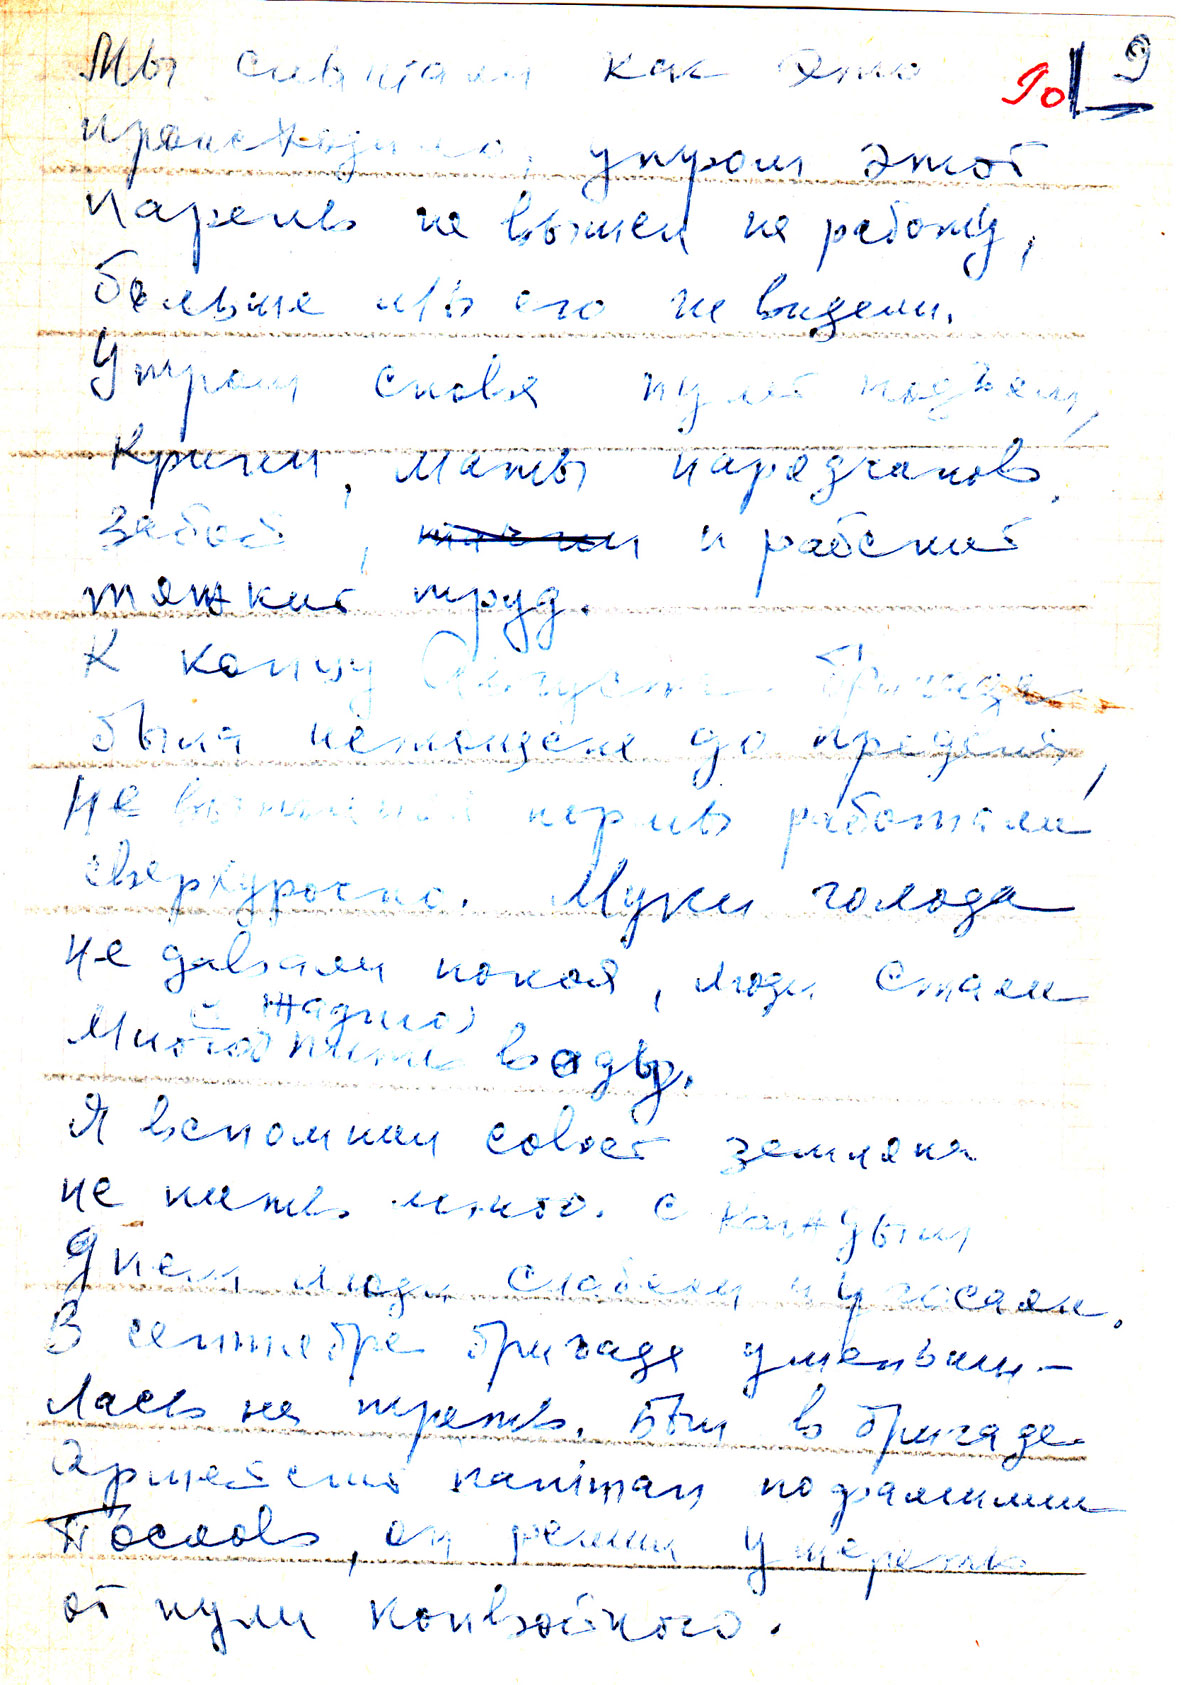 90 9
Мы слышали как это
происходило, утром этот
парень не вышел на работу,
больше мы его не видели.
Утром снова подъем,
Крики, маты нарядчиков,
забой, и рабский
тяжкий труд.
К концу Августа бригада
была истощена до предела,
Не выполнив нормы работали
сверхурочно. Муки голода
не давали покоя, люди стали
с жадностью
Много пить воды.
Я вспомнил совет земляка
не пить много. С каждым
днем люди слабели и угасали.
В сентябре бригада уменьши-
лась на треть. Был в бригаде
Армейский капитан по фамилии
Послов, он решил умереть
от пули конвойного.